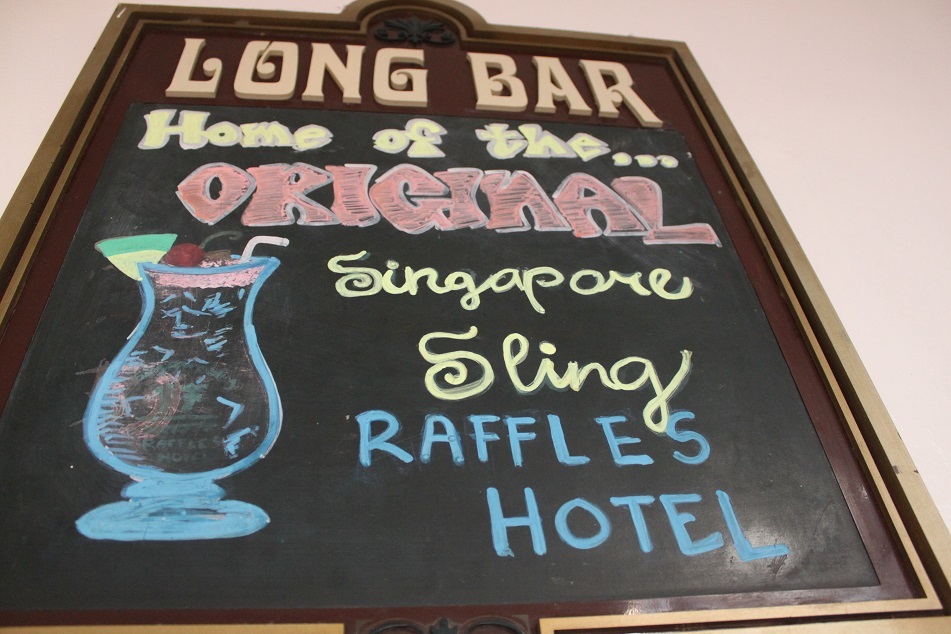 LONG BAR
Home of the...
ORIGINAL
Singapore
Sling
RAFFLES
HOTEL
RAFFLES
HOTEL